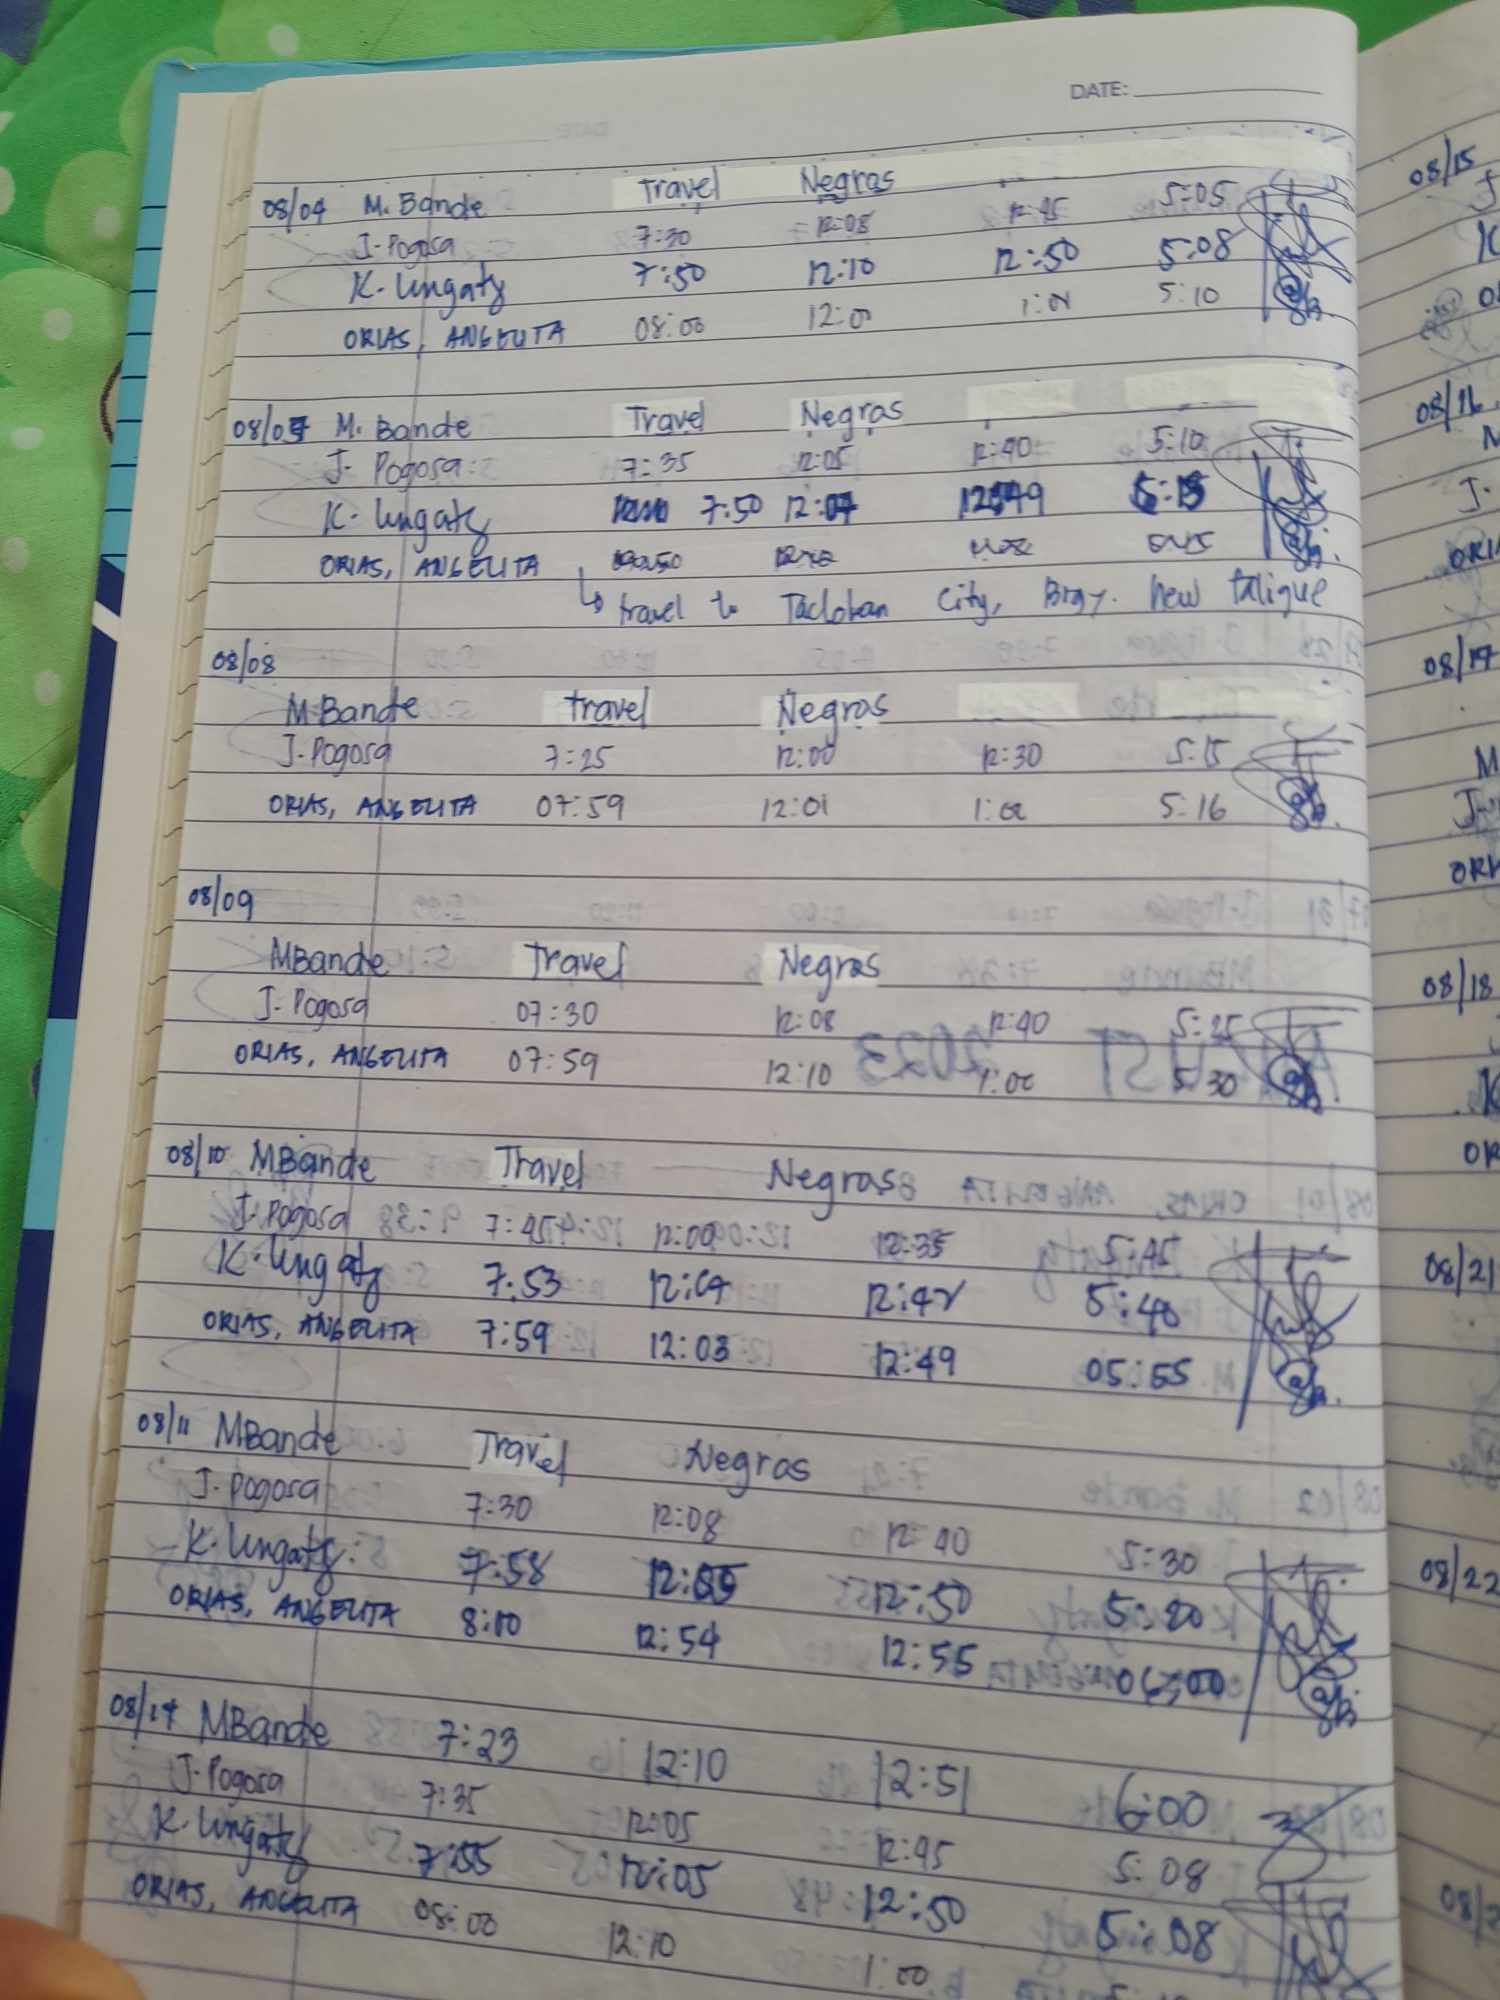 DATE:
08/04 M. Bande Travel Negras
J. Pogosa 7:30 12:08 12:45 5:05
K. Lungaty 7:50 12:10 12:50 5:08
ORIAS, ANGELITA 08:00 12:00 1:01 5:10
08/07 M. Bande Travel Negras
J. Pogosa 7:35 12:05 12:40 5:10
K. Lungaty 7:50 12:07 12:49 5:15
ORIAS, ANGELITA
↳ travel to Tacloban City, Brgy. New
08/08
M Bande travel Negras
J. Pogosa 7:25 12:00 12:30 5:15
ORIAS, ANGELITA 07:59 12:01 1:02 5:16
08/09
MBande Travel Negras
J. Pogosa 07:30 12:08 12:40 5:25
ORIAS, ANGELITA 07:59 12:10 1:00 5:30
08/10 MBande Travel Negras
J. Pogosa 7:45 12:00 12:35 5:45
K. Lungaty 7:53 12:04 12:42 5:48
ORIAS, ANGELITA 7:59 12:03 12:49 05:55
08/11 MBande Travel Negras
J. Pogosa 7:30 12:08 12:40 5:30
K. Lungaty 7:58 12:50 5:20
ORIAS, ANGELITA 8:00 12:54 12:55 06:00
08/14 MBande 7:23 12:10 12:51 6:00
J. Pogosa 7:35 12:05 12:45 5:08
K. Lungaty 7:55 12:05 12:50 5:08
ORIAS, ANGELITA 08:00 12:10 1:00
08/15
J
K
08/16
M
J.
08/17
M
J
08/18
J
K
08/21
08/22